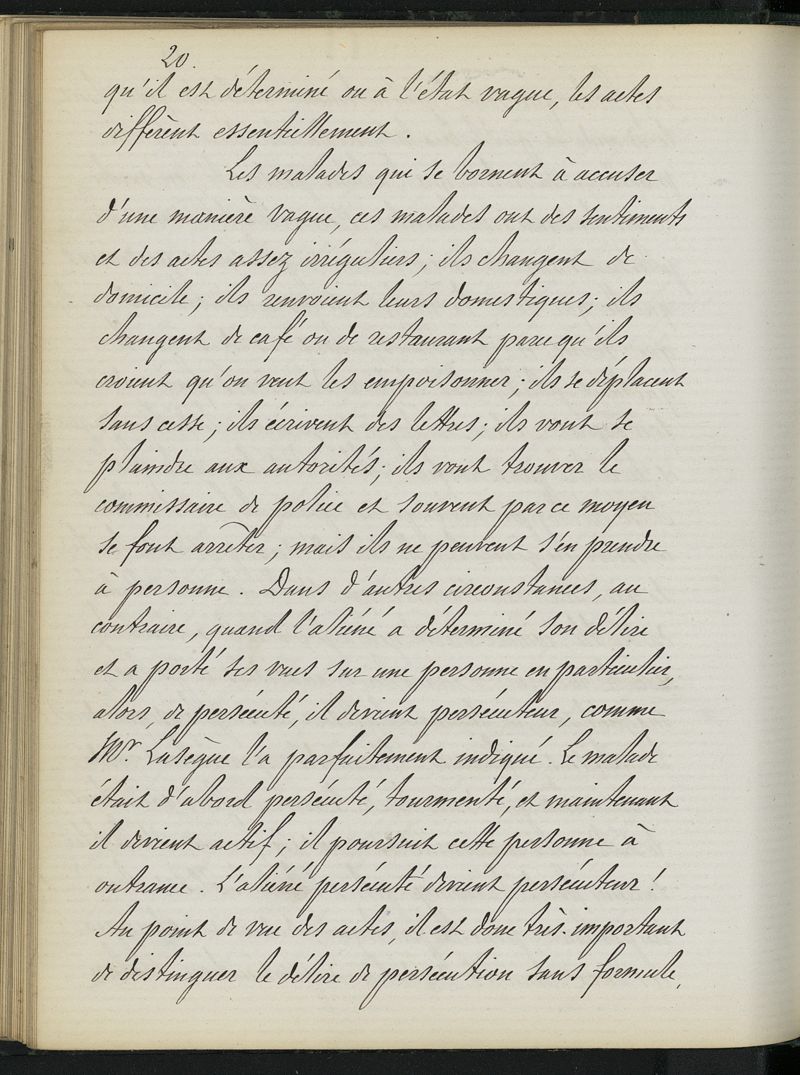 20
qu'il est déterminé ou à l'état vague, les actes
diffèrent essentiellement.
Les malades qui se bornent à accuser
d'une manière vague, ces malades ont des sentiments
et des actes assez irréguliers; ils changent de
domicile; ils renvoient leurs domestiques; ils
changent de café ou de restaurant parcequ'ils
croient qu'on veut les empoisonner; ils se déplacent
sans cesse; ils écrivent des lettres; ils vont se
plaindre aux autorités; ils vont trouver le
commissaire de police et souvent par ce moyen
se font arrêter; mais ils ne peuvent s'en prendre
à personne. Dans d'autres circonstances, au
contraire, quand l'aliéné a déterminé son délire
et a porté ses vues sur une personne en particulier,
alors, de persécuté, il devient persécuteur, comme
Mr. Lasègue l'a parfaitement indiqué. Le malade
était d'abord persécuté, tourmenté, et maintenant
il devient actif; il poursuit cette personne à
outrance. L'aliéné persécuté devient persécuteur!
Au point de vue des actes, il est donc très-important
de distinguer le délire de persécution sans formule,